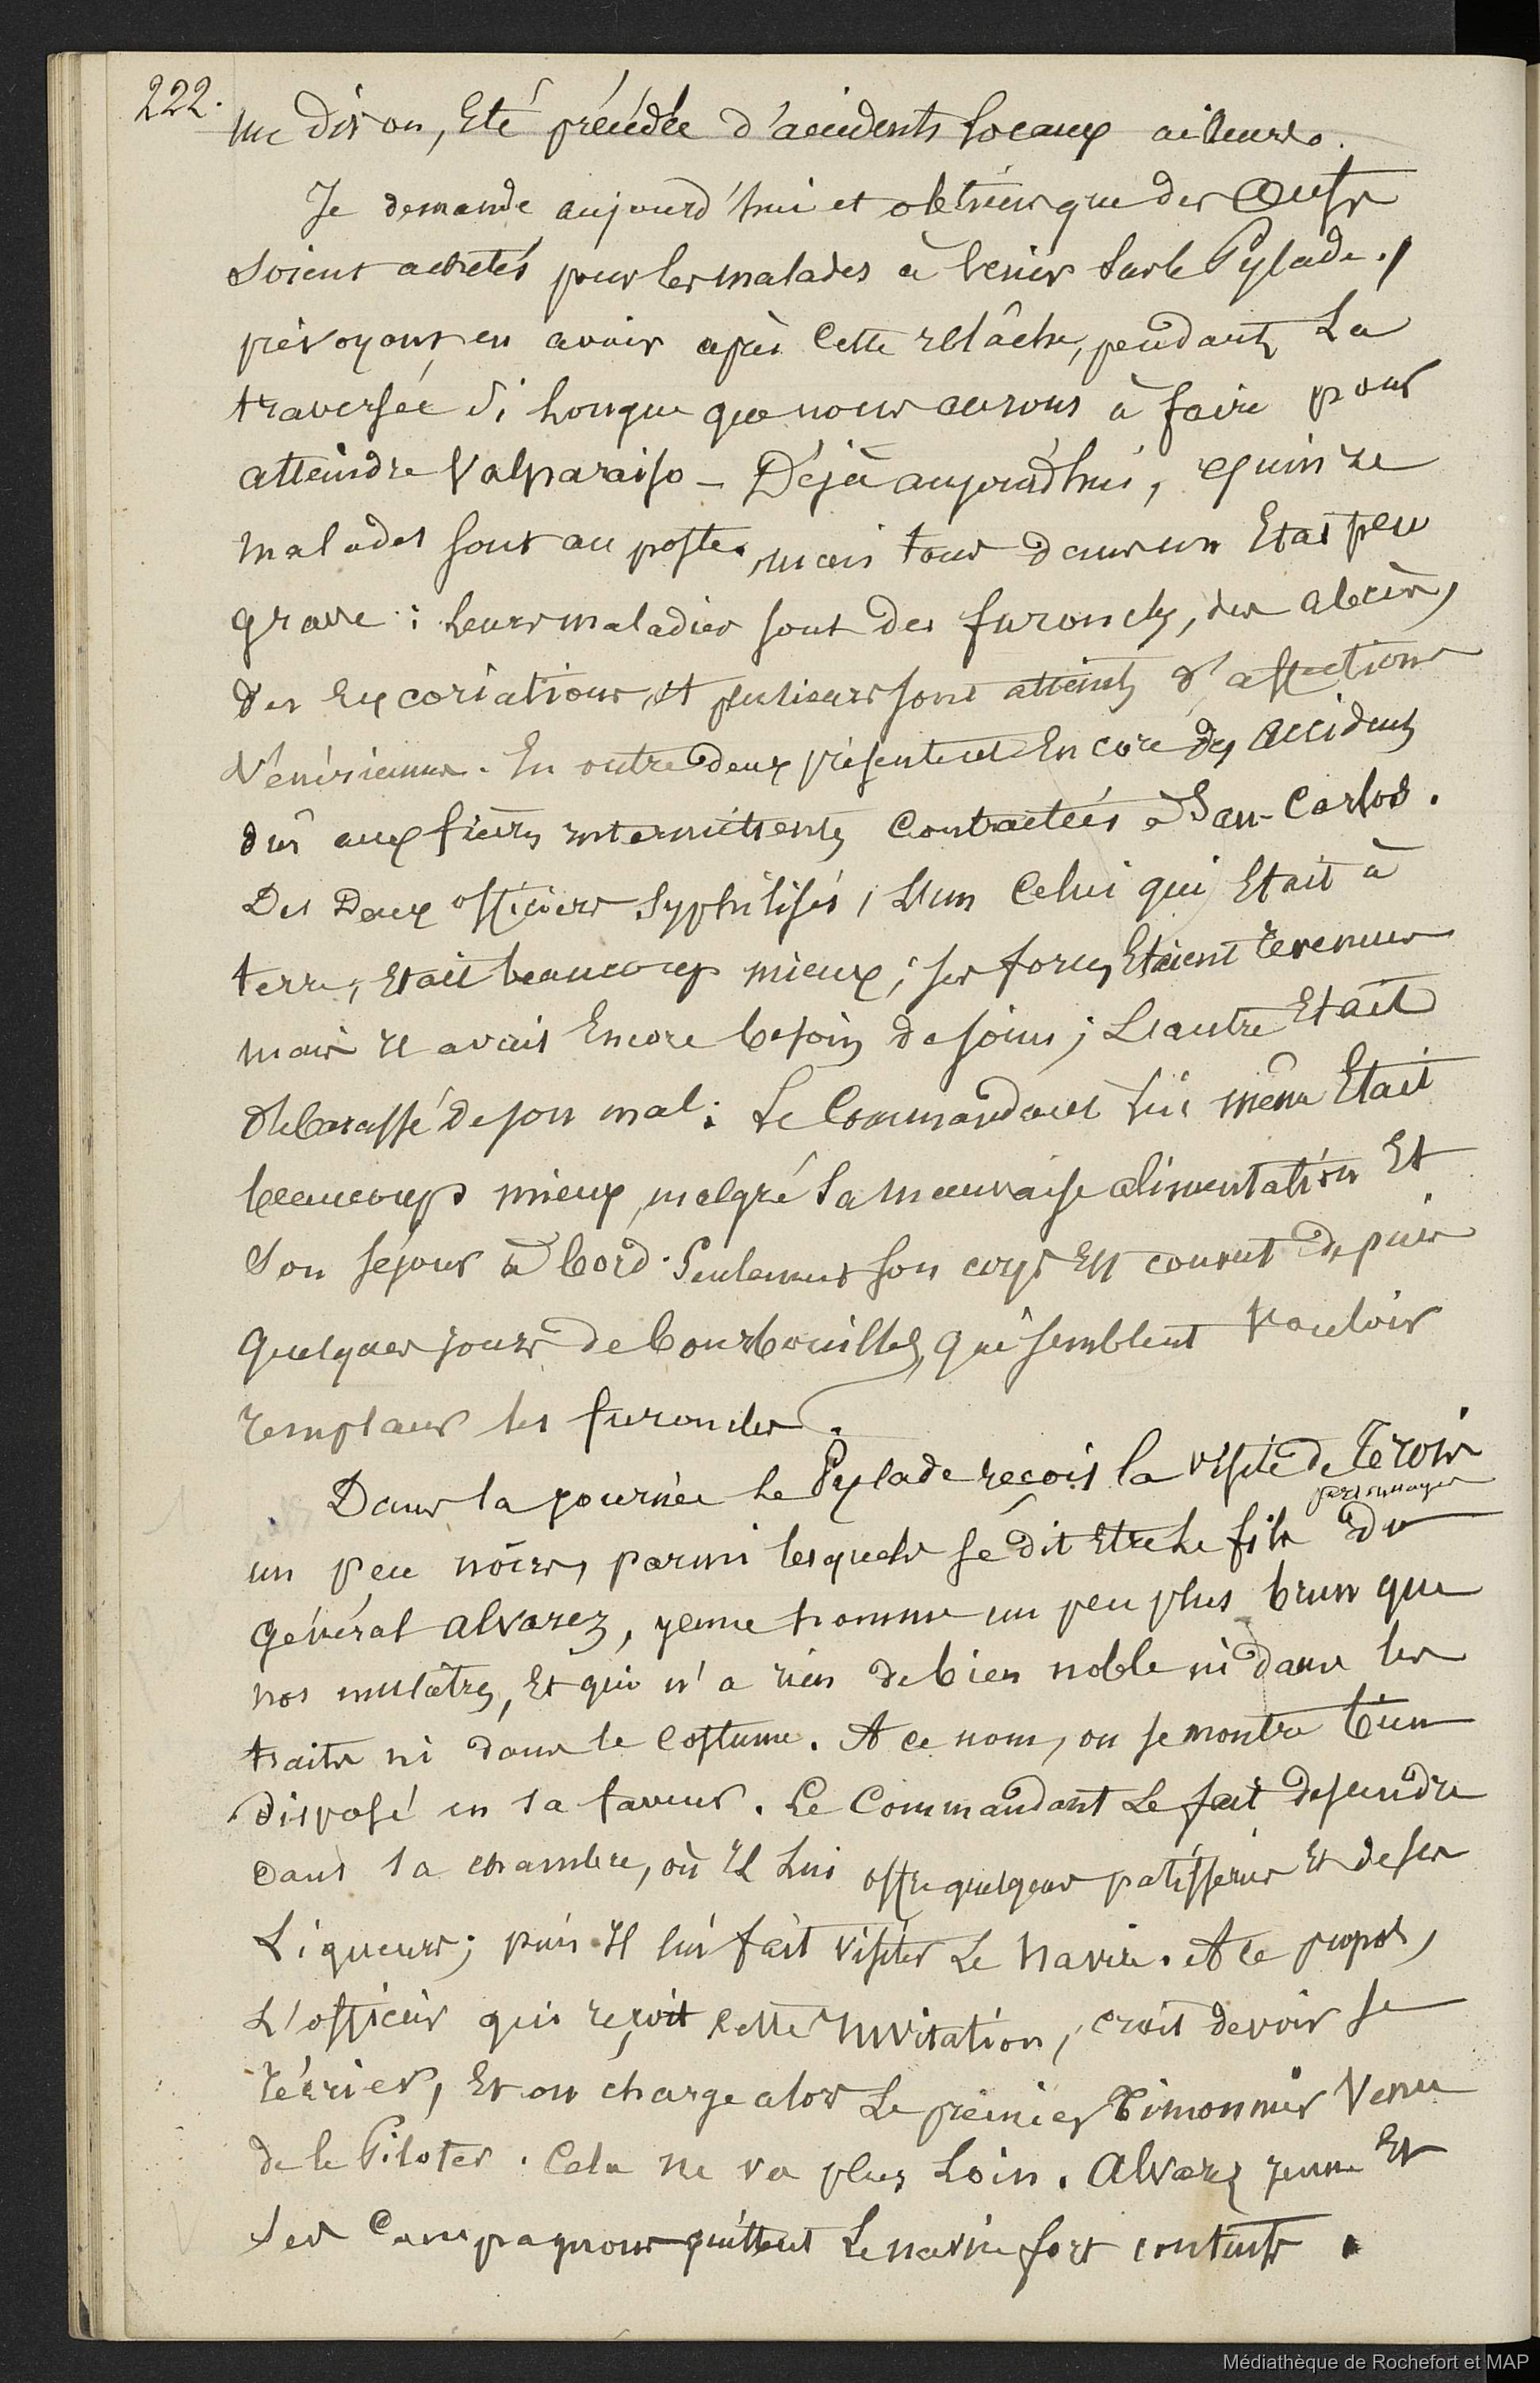 222.
me dit on, été précédée d'accidents locaux ailleurs.
Je demande aujourd'hui et obtiens que des œufs
soient achetés pour les malades à venir sur le Pylade,
prévoyant en avoir après cette relâche, pendant la
traversée si longue que nous aurons à faire pour
atteindre Valparaiso – Déjà aujourd'hui, quinze
malades sont au poste, mais tous dans un Etat peu
grave : leurs maladies sont des furoncles, des abcès,
des Excoriations, et plusieurs sont atteints d'affections
Vénériennes. En outre deux présentent Encore des accidents
dûs aux fièvres intermittentes contractées à San-Carlos.
Des Deux officiers syphilisés, L'un celui qui Etait à
terre, Etait beaucoup mieux ; ses forces Etaient revenues
mais il avait Encore besoin de soins ; L'autre Etait
débarassé de son mal : Le Commandant lui même Etait
beaucoup mieux, malgré sa mauvaise alimentation Et
son séjour à bord. Seulement son corps Est couvert depuis
quelques jours de bourbouilles, qui semblent vouloir
remplacer les furoncles.
Dans la journée le Pylade reçoit la visite de trois
personnages
un peu noirs, parmi lesquels se dit Etre le fils du
général Alvarez, jeune homme un peu plus brun que
nos mulâtres, Et qui n'a rien de bien noble ni dans les
traits ni dans le costume. A ce nom, on se montre bien
disposé en sa faveur. Le Commandant Le fait descendre
dans sa chambre, où Il Lui offre quelques patisseries Et de ses
Liqueurs ; puis Il lui fait visiter Le Navire. A ce propos,
L'officier qui reçoit cette Invitation, croit devoir se
récrier, Et on charge alors Le premier Timonnier Venu
de le Piloter. Cela ne va plus Loin. Alvarez jeune Et
ses Compagnons quittent Le navire fort contents.
Médiathèque de Rochefort et MAP